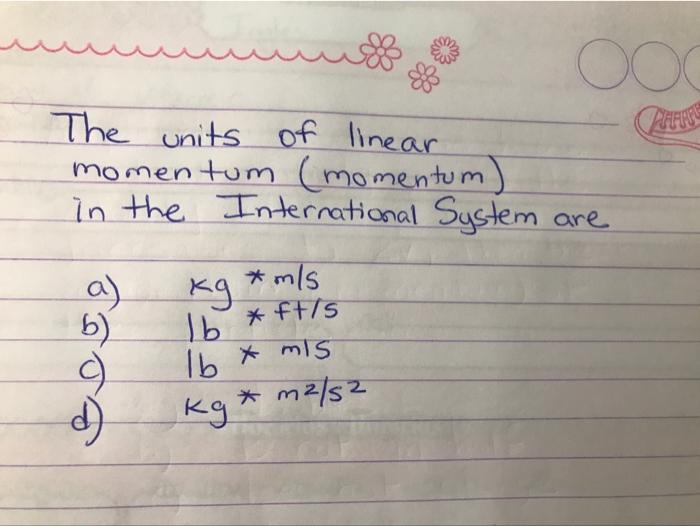 The units of linear
momentum (momentum)
in the International System are
a) kg * m/s
b) lb * ft/s
c) lb * m/s
d) kg * m2/s2